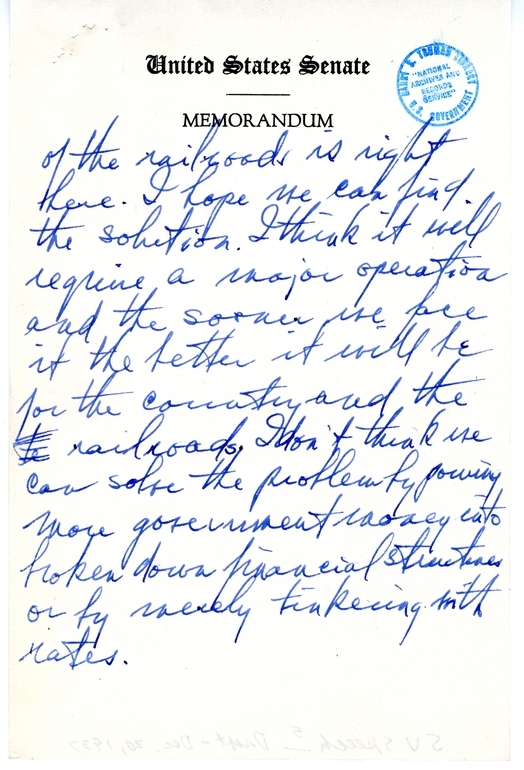 United States Senate
MEMORANDUM
HARRY S. TRUMAN LIBRARY
"NATIONAL
ARCHIVES AND
RECORDS
SERVICE"
U.S. GOVERNMENT
of the railroads is right
here. I hope we can find
the solution. I think it will
require a major operation
and the sooner we face
it the better it will be
for the country and the
railroads. I don't think we
can solve the problem by pouring
more government money into
broken down financial structures
or by merely tinkering with
rates.
S V Speech I Draft - Dec. 20, 1937